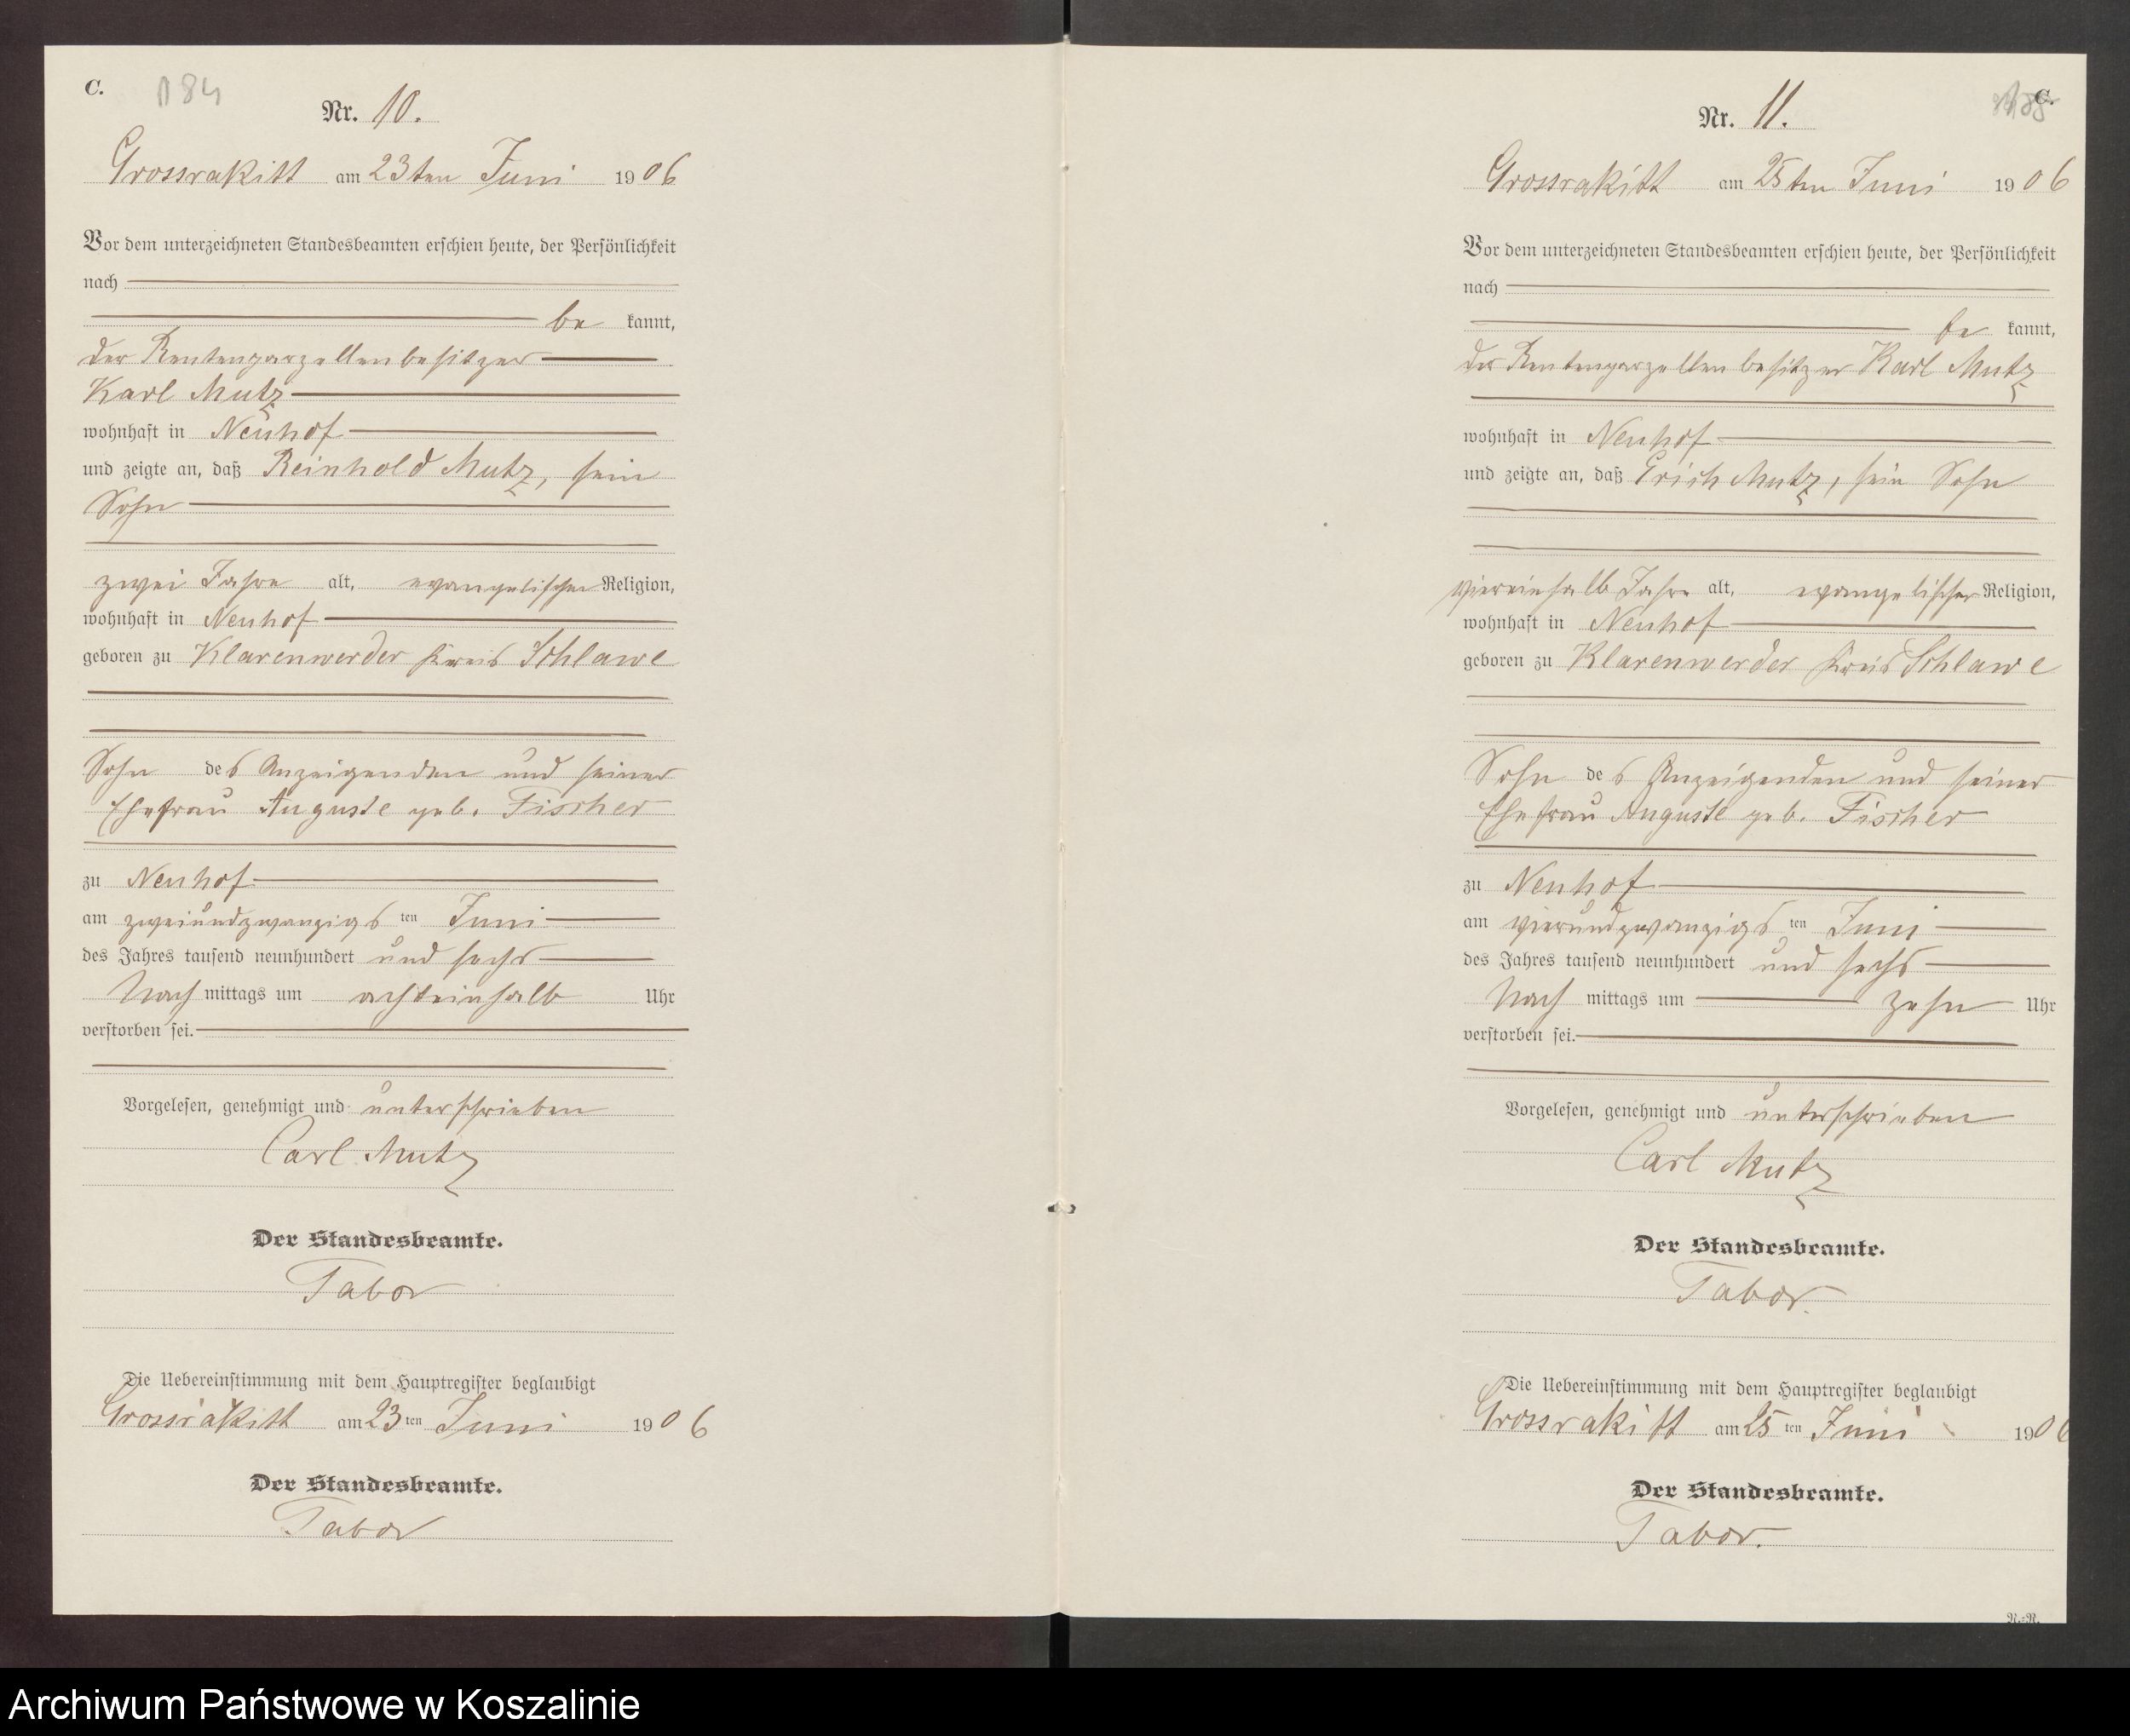 C. 184
Nr. 10.
Grossrakitt am 23ten Juni 1906
Vor dem unterzeichneten Standesbeamten erschien heute, der Persönlichkeit
nach
be kannt,
der Rentenparzellenbesitzer
Karl Mutz
wohnhaft in Neuhof
und zeigte an, daß Reinhold Mutz, sein
Sohn
zwei Jahre alt, evangelischer Religion,
wohnhaft in Neuhof
geboren zu Klarenwerder Kreis Schlawe
Sohn des Anzeigenden und seiner
Ehefrau Auguste geb. Fischer
zu Neuhof
am zweiundzwanzigs ten Juni
des Jahres tausend neunhundert und sechs
Nach mittags um achteinhalb Uhr
verstorben sei.
Vorgelesen, genehmigt und unterschrieben
Carl Mutz
Der Standesbeamte.
Tabor
Die Uebereinstimmung mit dem Hauptregister beglaubigt
Grossrakitt am 23 ten Juni 1906
Der Standesbeamte.
Tabor
C.
Nr. 11.
Grossrakitt am 25ten Juni 1906
Vor dem unterzeichneten Standesbeamten erschien heute, der Persönlichkeit
nach
be kannt,
der Rentenparzellenbesitzer Karl Mutz
wohnhaft in Neuhof
und zeigte an, daß Erich Mutz, sein Sohn
viereinhalb Jahre alt, evangelischer Religion,
wohnhaft in Neuhof
geboren zu Klarenwerder Kreis Schlawe
Sohn des Anzeigenden und seiner
Ehefrau Auguste geb. Fischer
zu Neuhof
am vierundzwanzigs ten Juni
des Jahres tausend neunhundert und sechs
Nach mittags um zehn Uhr
verstorben sei.
Vorgelesen, genehmigt und unterschrieben
Carl Mutz
Der Standesbeamte.
Tabor.
Die Uebereinstimmung mit dem Hauptregister beglaubigt
Grossrakitt am 25 ten Juni 1906
Der Standesbeamte.
Tabor.
N.-R.
Archiwum Państwowe w Koszalinie